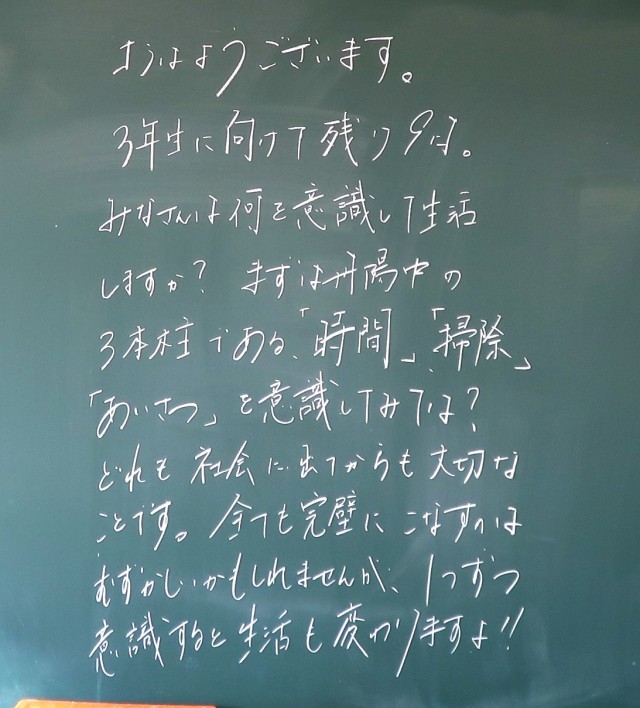 おはようございます。
3年生に向けて残り9日。
みなさんは何を意識して生活
しますか? まずは丹陽中の
3本柱である、「時間」、「掃除」
「あいさつ」を意識してみては?
どれも社会に出てからも大切な
ことです。全ても完璧にこなすのは
むずかしいかもしれませんが、1つずつ
意識すると生活も変わりますよ!!